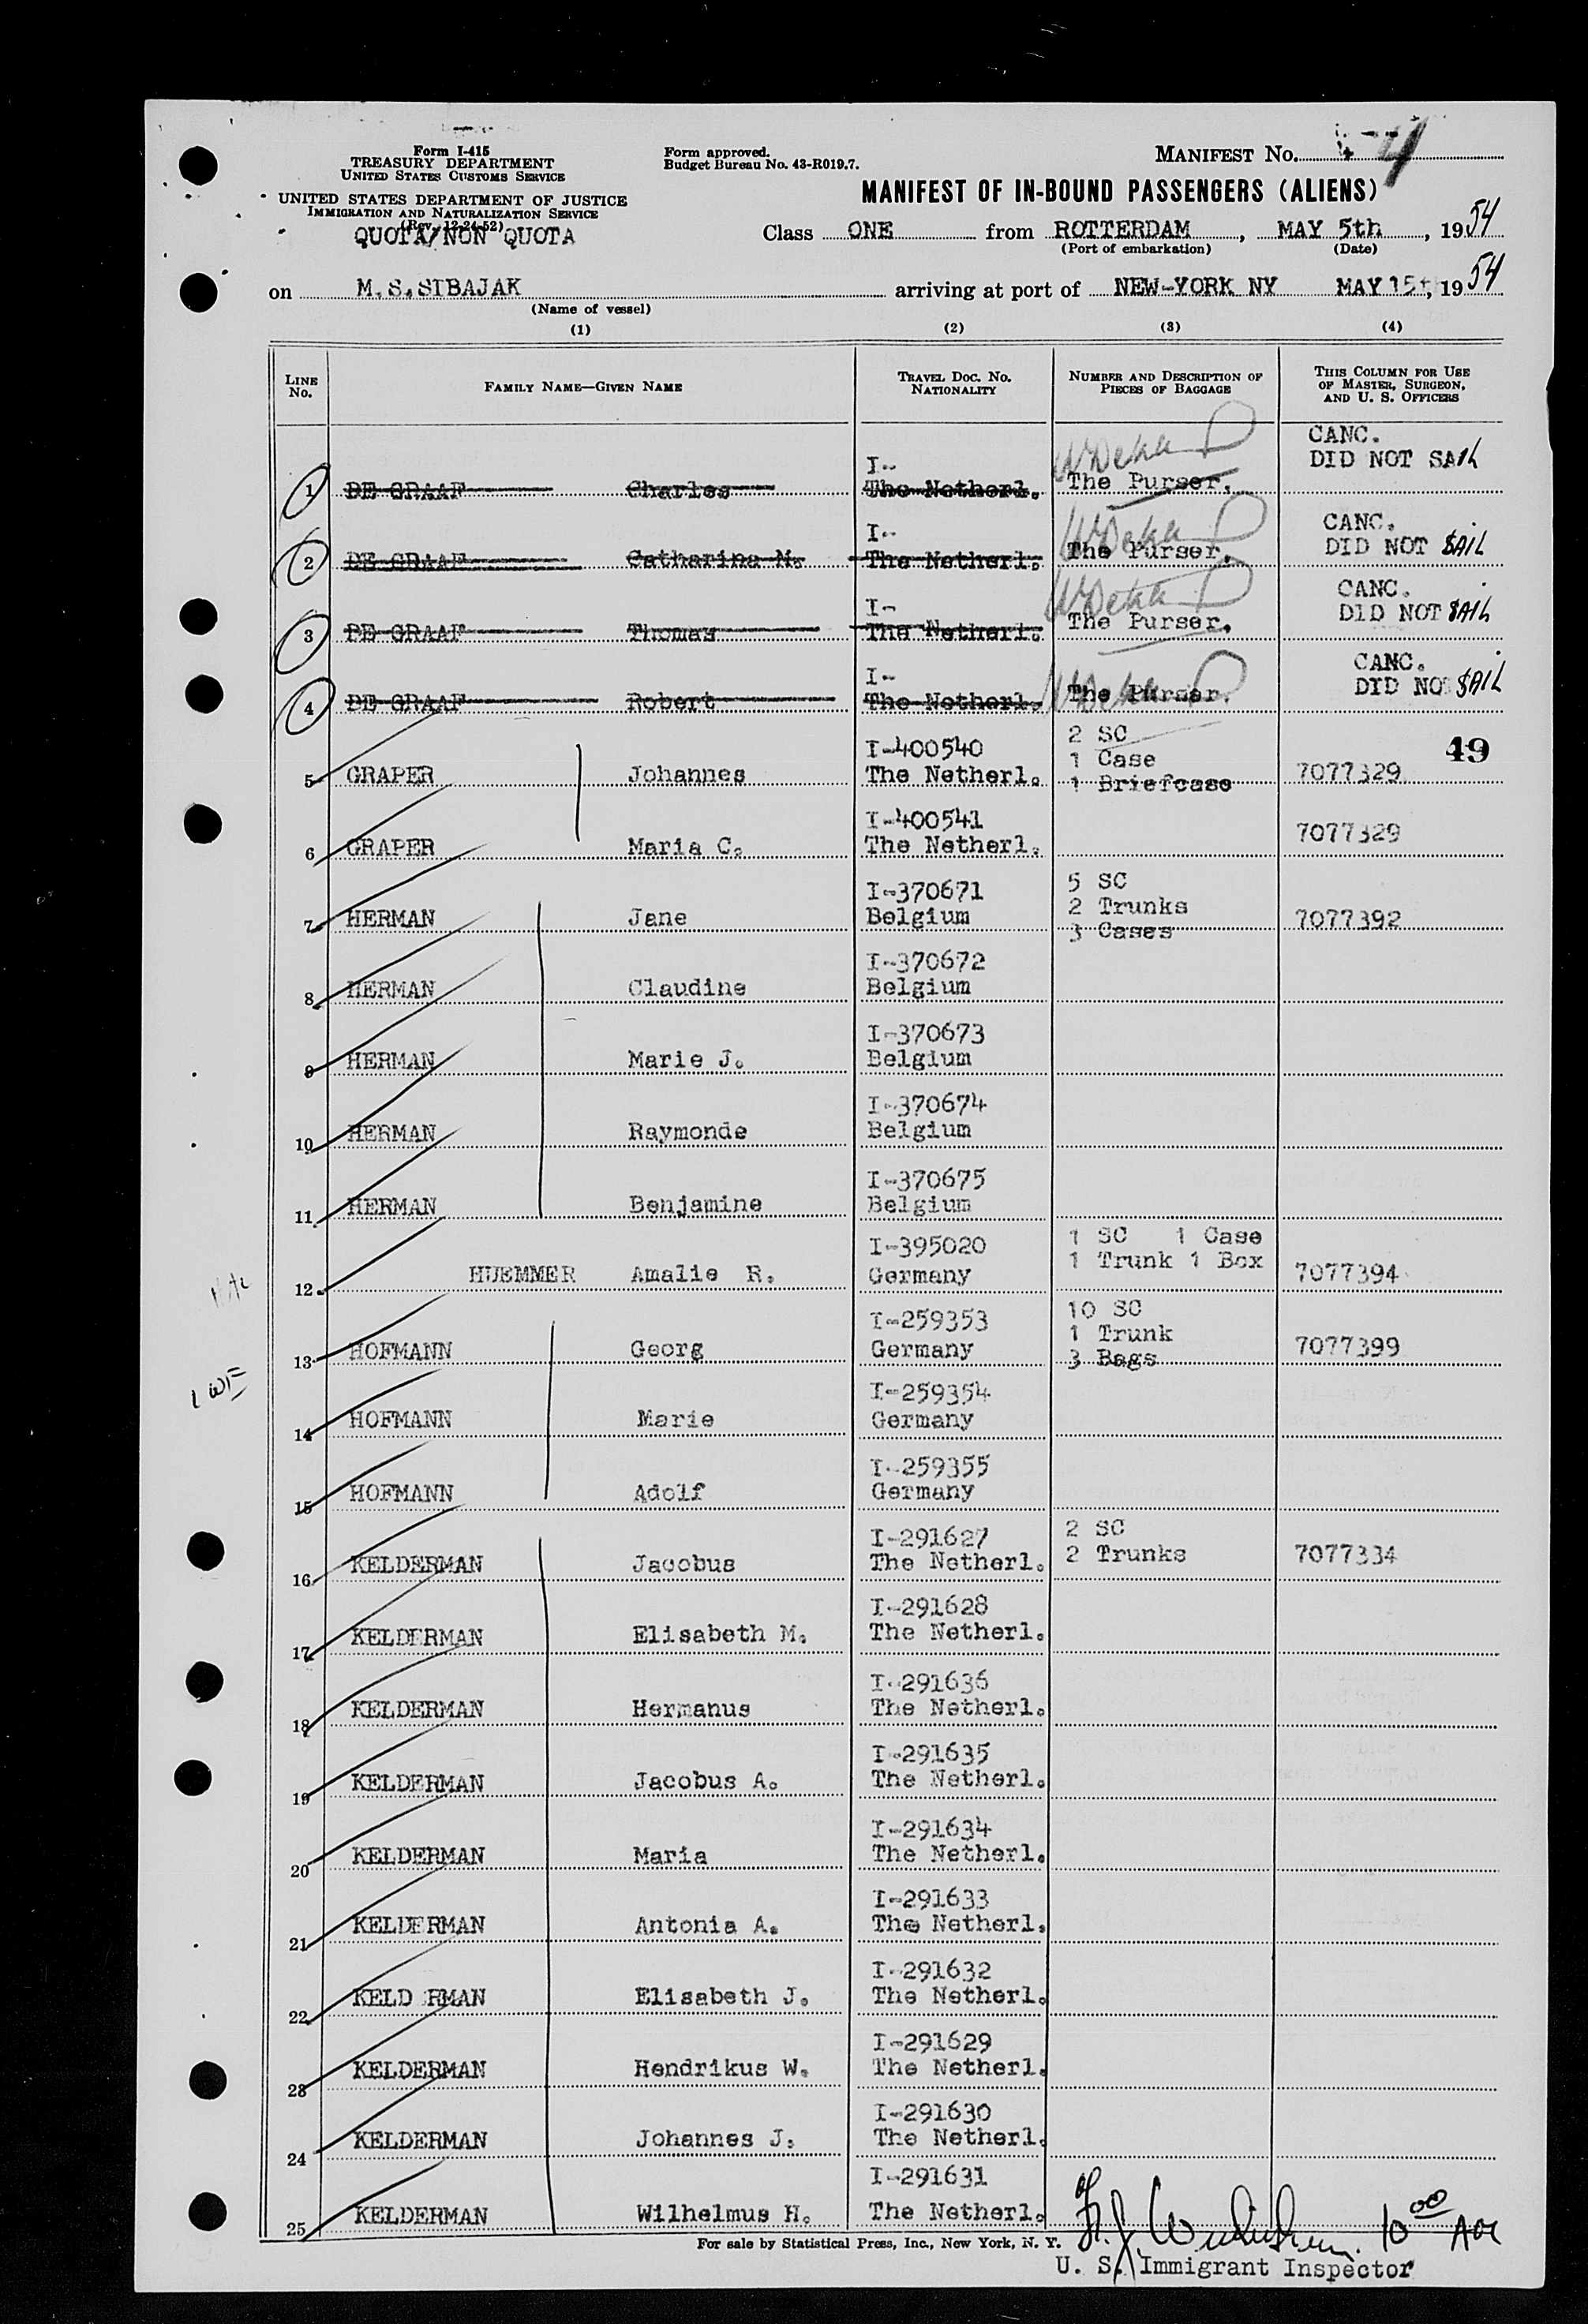 Form I-415
TREASURY DEPARTMENT
UNITED STATES CUSTOMS SERVICE
UNITED STATES DEPARTMENT OF JUSTICE
IMMIGRATION AND NATURALIZATION SERVICE
(Rev. 12-24-52)
QUOTA/NON QUOTA
Form approved.
Budget Bureau No. 43-R019.7.
MANIFEST NO. 4
MANIFEST OF IN-BOUND PASSENGERS (ALIENS)
Class ONE from ROTTERDAM, MAY 5th, 1954
(Port of embarkation) (Date)
on M.S.SIBAJAK arriving at port of NEW-YORK NY MAY 15th, 1954
(Name of vessel)
(1) (2) (3) (4)
LINE NO. FAMILY NAME—GIVEN NAME TRAVEL DOC. NO. NATIONALITY NUMBER AND DESCRIPTION OF PIECES OF BAGGAGE THIS COLUMN FOR USE OF MASTER, SURGEON, AND U. S. OFFICERS
1 DE GRAAF Charles I-- The Netherl. The Purser. CANC. DID NOT SAIL
2 DE GRAAF Catharina M. I-- The Netherl. The Purser. CANC. DID NOT SAIL
3 DE GRAAF Thomas I- The Netherl. The Purser. CANC. DID NOT SAIL
4 DE GRAAF Robert I-- The Netherl. The Purser. CANC. DID NOT SAIL
49
5 GRAPER Johannes I-400540 The Netherl. 2 SC 1 Case 1 Briefcase 7077329
6 GRAPER Maria C. I-400541 The Netherl. 7077329
7 HERMAN Jane I-370671 Belgium 5 SC 2 Trunks 3 Cases 7077392
8 HERMAN Claudine I-370672 Belgium
9 HERMAN Marie J. I-370673 Belgium
10 HERMAN Raymonde I-370674 Belgium
11 HERMAN Benjamine I-370675 Belgium
12 HUEMMER Amalie R. I-395020 Germany 1 SC 1 Case 1 Trunk 1 Box 7077394
13 HOFMANN Georg I-259353 Germany 10 SC 1 Trunk 3 Bags 7077399
LWF
14 HOFMANN Marie I-259354 Germany
15 HOFMANN Adolf I-259355 Germany
16 KELDERMAN Jacobus I-291627 The Netherl. 2 SC 2 Trunks 7077334
17 KELDERMAN Elisabeth M. I-291628 The Netherl.
18 KELDERMAN Hermanus I-291636 The Netherl.
19 KELDERMAN Jacobus A. I-291635 The Netherl.
20 KELDERMAN Maria I-291634 The Netherl.
21 KELDERMAN Antonia A. I-291633 The Netherl.
22 KELD RMAN Elisabeth J. I-291632 The Netherl.
23 KELDERMAN Hendrikus W. I-291629 The Netherl.
24 KELDERMAN Johannes J. I-291630 The Netherl.
25 KELDERMAN Wilhelmus H. I-291631 The Netherl.
For sale by Statistical Press, Inc., New York, N. Y.
10 00
U. S. Immigrant Inspector